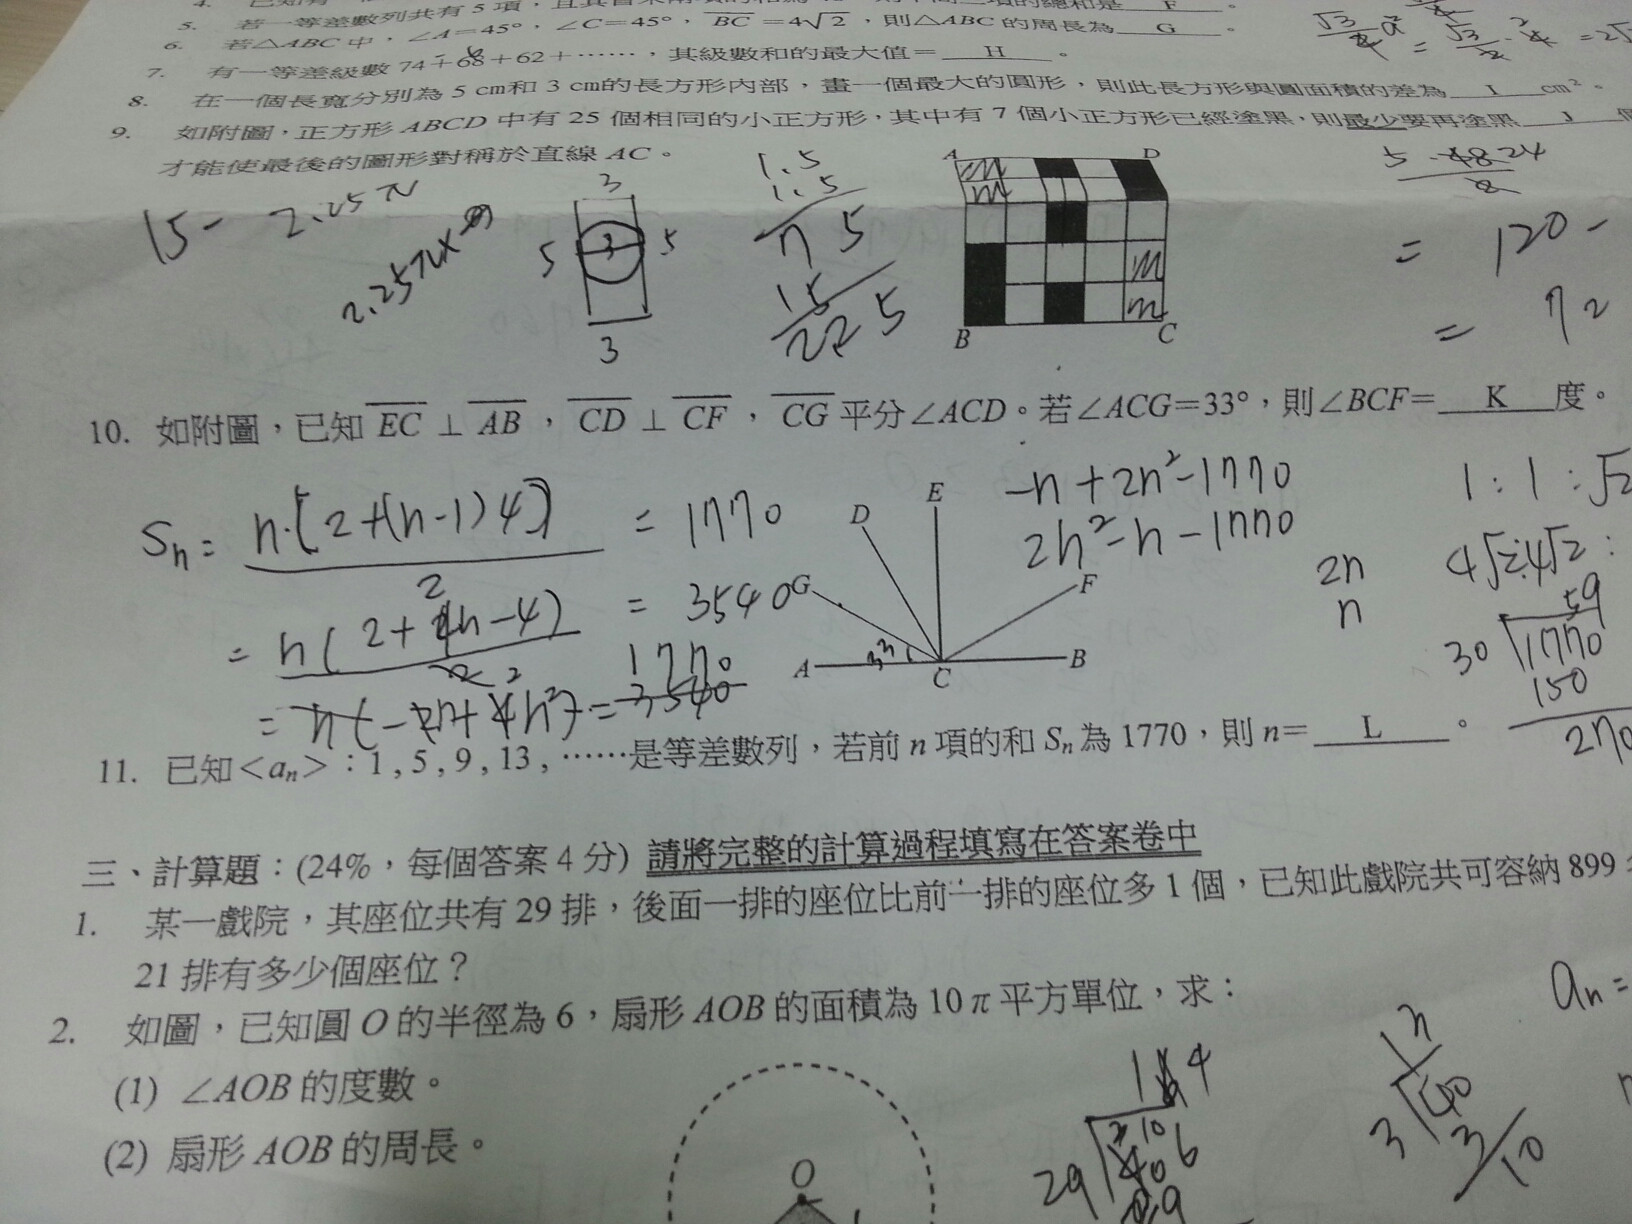 5. 若一等差數列共有 5 項，
6. 若△ABC 中，∠A=45°，∠C=45°，BC=4√2，則△ABC 的周長為 G 。
7. 有一等差級數 74+68+62+……，其級數和的最大值= H 。
8. 在一個長寬分別為 5 cm和 3 cm的長方形內部，畫一個最大的圓形，則此長方形與圓面積的差為 I cm²。
9. 如附圖，正方形 ABCD 中有 25 個相同的小正方形，其中有 7 個小正方形已經塗黑，則最少要再塗黑 J
才能使最後的圖形對稱於直線 AC。
15- 2.25π
3
5 3 5
3
1.5
1.5
7 5
15
225
A D
B C
= 120-
= 72
10. 如附圖，已知 EC⊥AB，CD⊥CF，CG平分∠ACD。若∠ACG=33°，則∠BCF= K 度。
Sn= n·[2+(n-1)4] = 1770
2
= n(2+4n-4) = 3540
1770
3540
-n+2n²-1770
2n²-n-1770
2n
n
1:1:√2
4√2:4√2:
59
30 1770
150
270
D E
G F
A 33 C B
11. 已知<an>：1,5,9,13,……是等差數列，若前 n 項的和 Sn 為 1770，則 n= L 。
三、計算題：(24%，每個答案 4 分) 請將完整的計算過程填寫在答案卷中
1. 某一戲院，其座位共有 29 排，後面一排的座位比前一排的座位多 1 個，已知此戲院共可容納 899
21 排有多少個座位？
an=
2. 如圖，已知圓 O 的半徑為 6，扇形 AOB 的面積為 10π 平方單位，求：
(1) ∠AOB 的度數。
(2) 扇形 AOB 的周長。
O
29 406
3 40
3
10